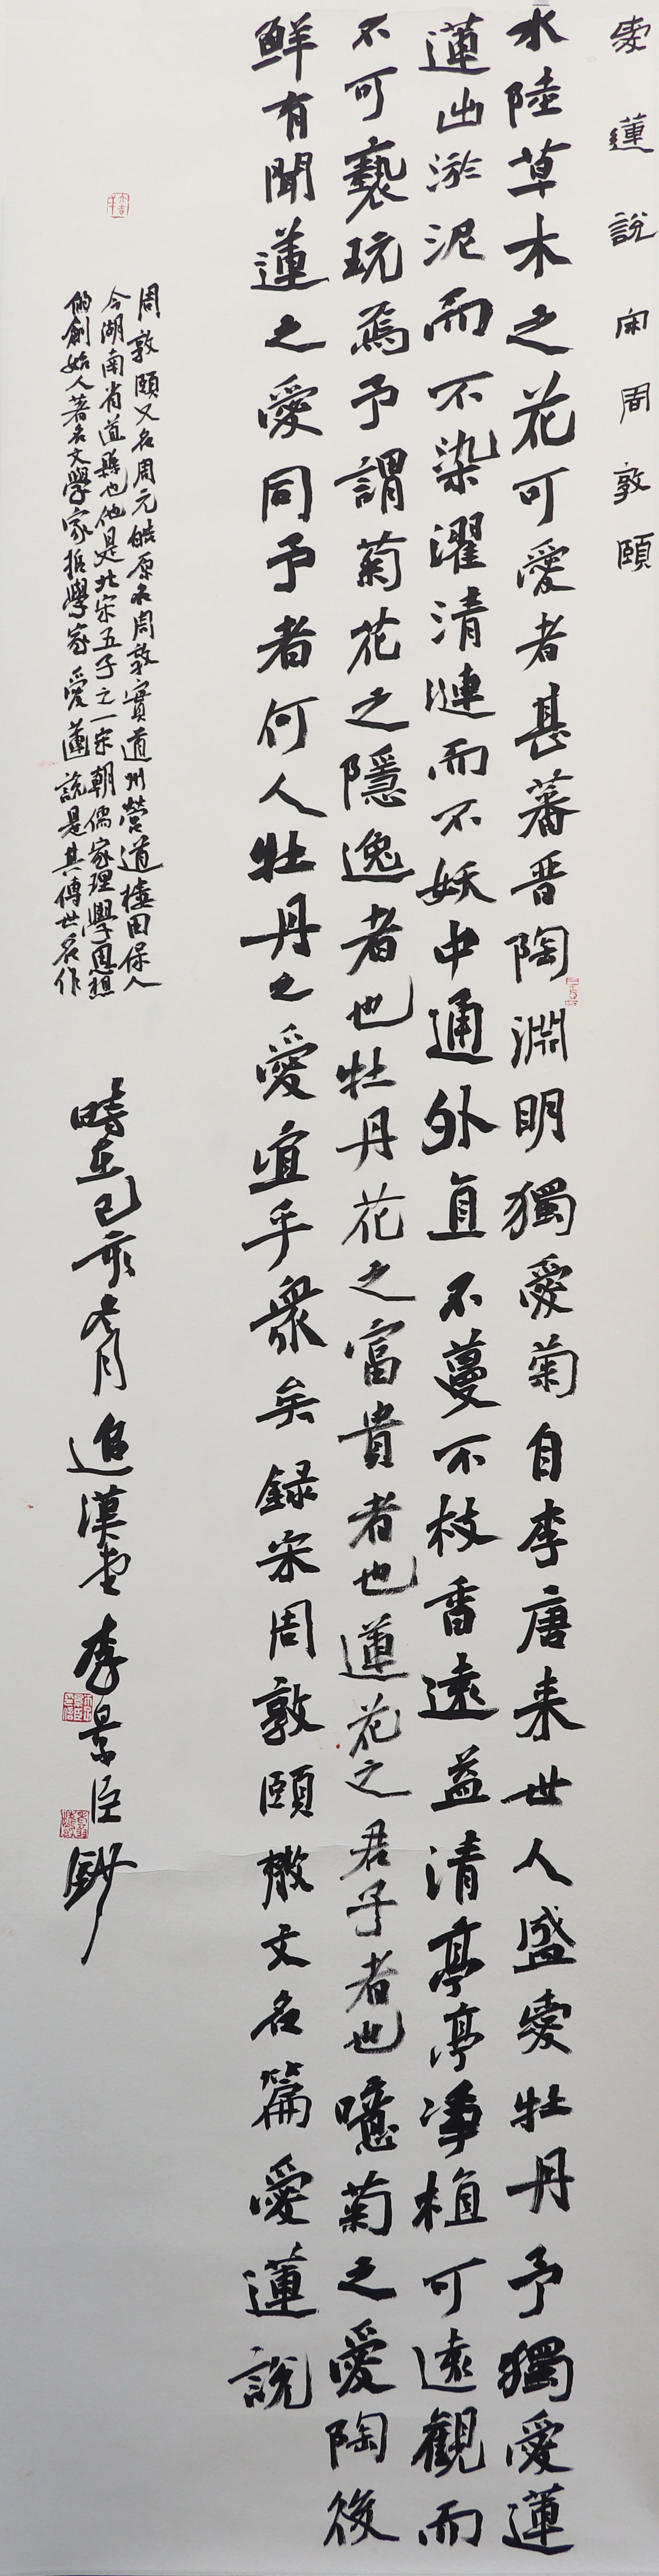 愛蓮說 宋周敦頤
水陸草木之花可愛者甚蕃晋陶淵明獨愛菊自李唐来世人盛愛牡丹予獨愛蓮
蓮出淤泥而不染濯清漣而不妖中通外直不蔓不枝香遠益清亭亭净植可遠觀而
不可褻玩焉予謂菊花之隱逸者也牡丹花之富貴者也蓮花之君子者也噫菊之愛陶後
鮮有聞蓮之愛同予者何人牡丹之愛宜乎衆矣録宋周敦頤散文名篇愛蓮說
周敦頤又名周元皓原名周敦實道州營道樓田保人
今湖南省道縣也他是北宋五子之一宋朝儒家理學思想
的創始人著名文學家哲學家愛蓮說是其傳世名作
時在己亥六月追漢堂李景臣鈔